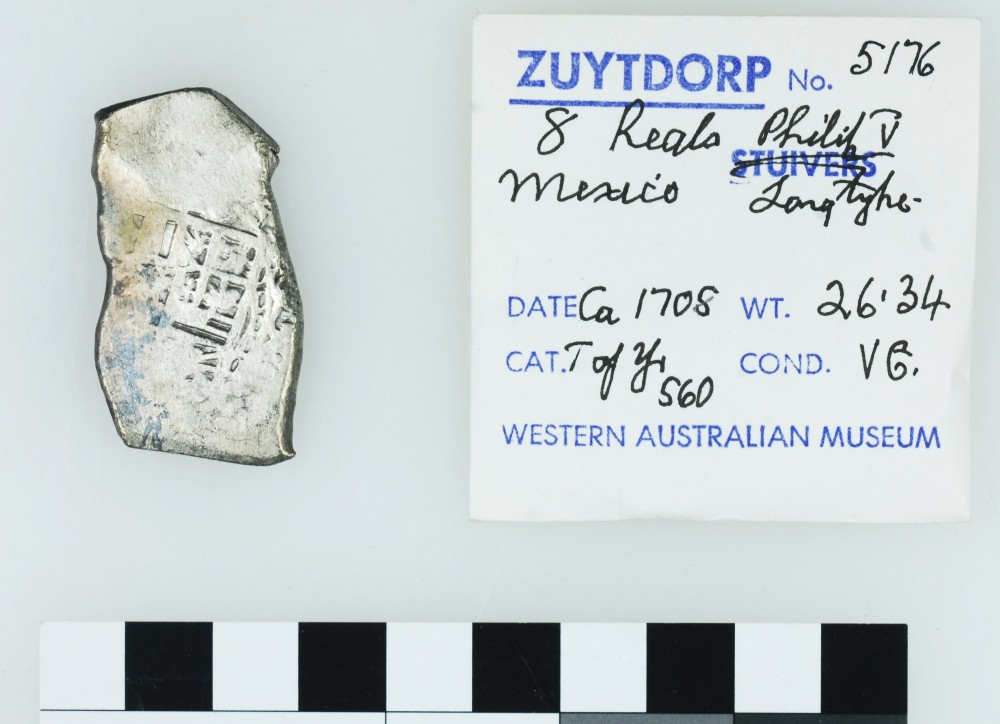 ZUYTDORP No. 5176
8 Reals Philip V
STUIVERS
Mexico Long type
DATE Ca 1708 WT. 26·34
CAT. T of Y. 560 COND. VG.
WESTERN AUSTRALIAN MUSEUM